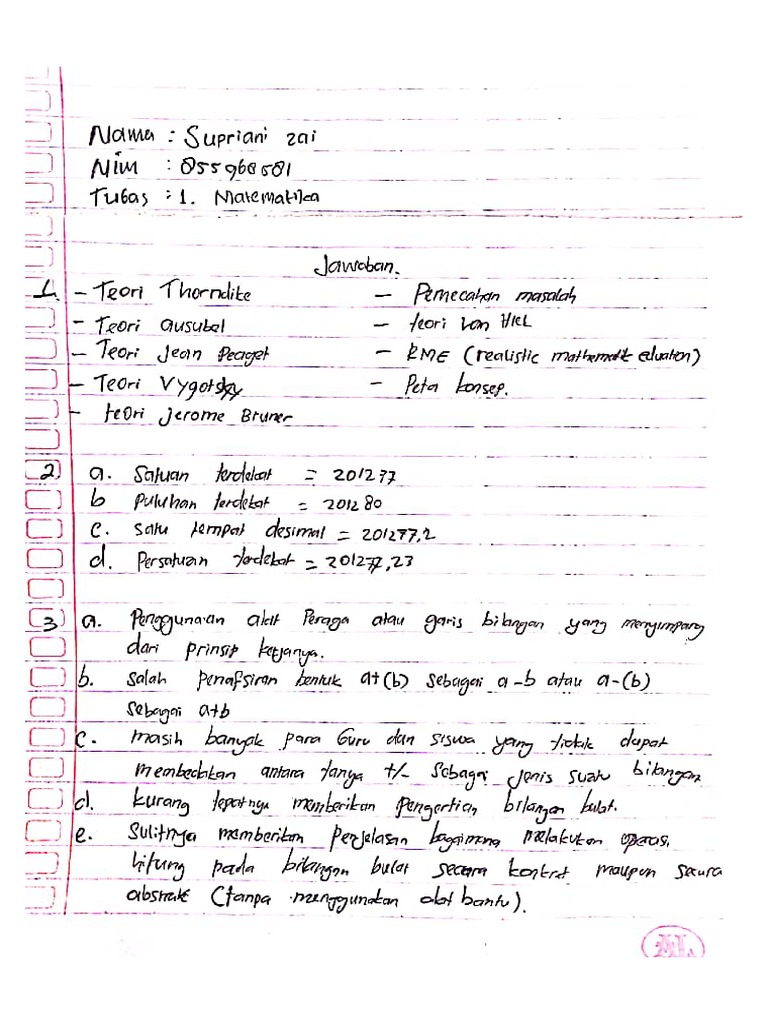 Nama : Supriani zai
Nim : 055960501
Tugas : 1. Matematika
Jawaban.
1. - Teori Thorndike - Pemecahan masalah
- Teori ausubel - teori van HIEL
- Teori Jean Peaget - RME (realistic mathematik eduation)
- Teori Vygotsky - Peta konsep.
- teori Jerome Bruner
2 a. Satuan terdekat = 201277
b Puluhan terdekat = 201280
c. Satu tempat desimal = 201277,2
d. Persatuan terdekat = 201277,23
3 a. Penggunaan alat Peraga atau garis bilangan yang menyimpang
dari prinsip kerjanya.
b. Salah penafsiran bentuk a+(b) sebagai a-b atau a-(b)
sebagai a+b
c. masih banyak para Guru dan siswa yang tidak dapat
membedakan antara tanya +/- sebagai jenis suatu bilangan
d. kurang tepatnya memberikan pengertian bilangan bulat.
e. Sulitnya memberikan penjelasan bagaimana melakukan operasi
hitung pada bilangan bulat secara kontret maupun secara
abstrak (tanpa menggunakan alat bantu).